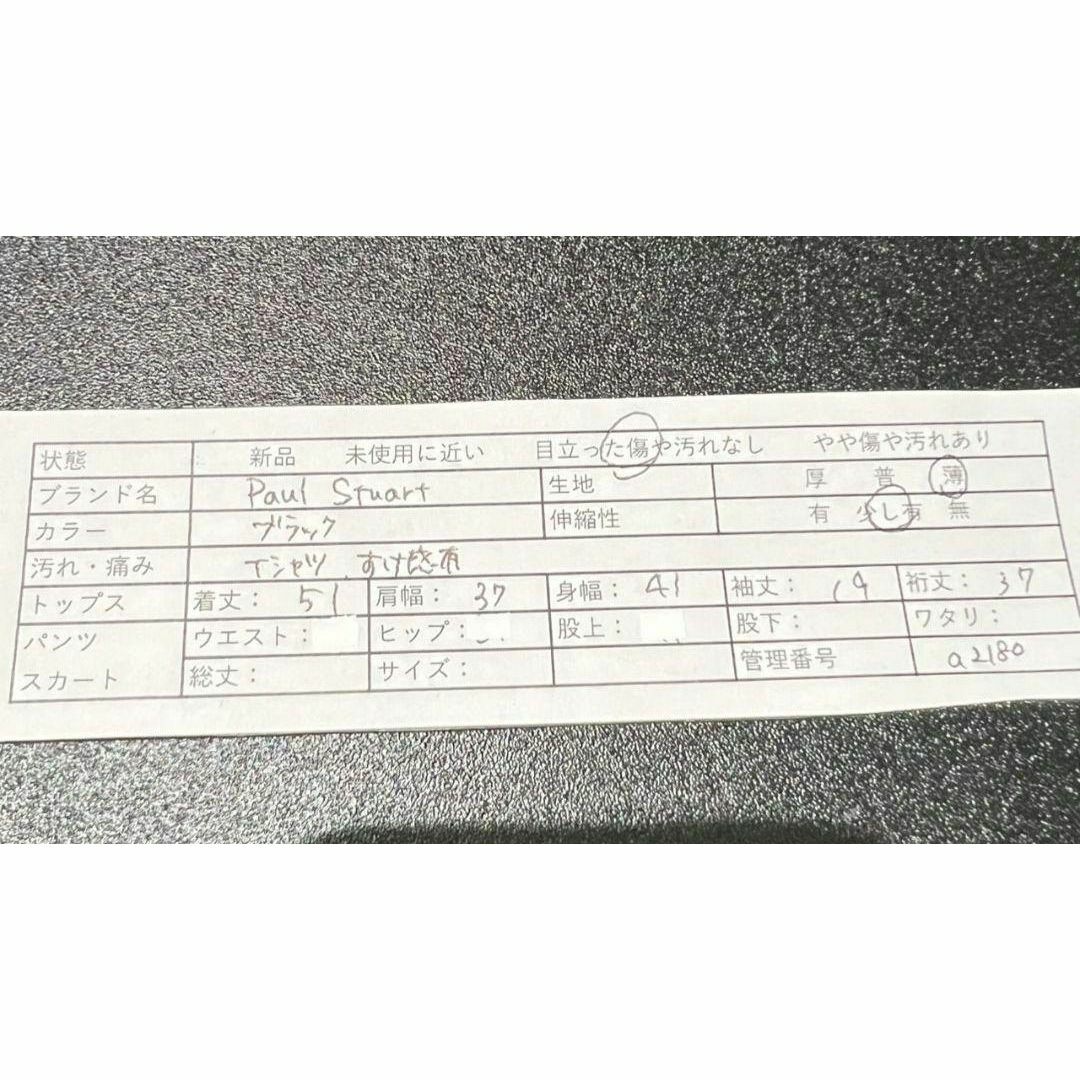 状態 新品 未使用に近い 目立った傷や汚れなし やや傷や汚れあり
ブランド名 Paul Stuart 生地 厚 普 薄
カラー ブラック 伸縮性 有 少し有 無
汚れ・痛み Tシャツ、すけ感有
トップス 着丈: 51 肩幅: 37 身幅: 41 袖丈: 14 裄丈: 37
パンツ ウエスト: ヒップ: 股上: 股下: ワタリ:
スカート 総丈: サイズ: 管理番号 a2180